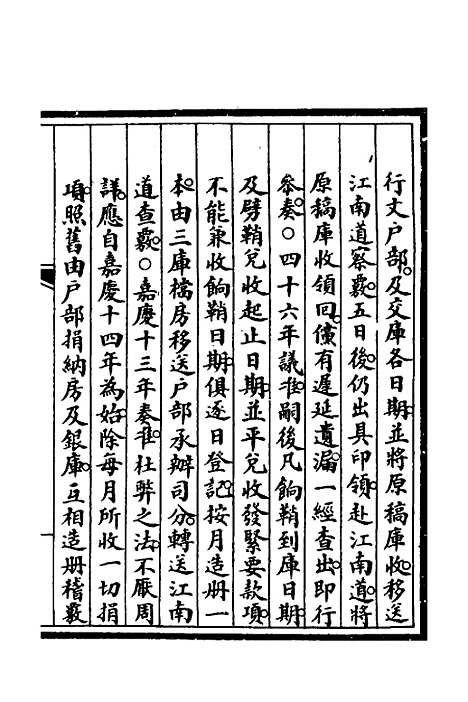 行文户部。及交庫各日期。並將原稿庫收。移送
江南道察覈。五日後。仍出具印領。赴江南道。將
原稿庫收領回。儻有遲延遺漏。一經查出。即行
叅奏。○四十六年議准。嗣後凡餉鞘到庫日期。
及劈鞘兌收起止日期。並平兌收發緊要款項。
不能兼收餉鞘日期。俱逐日登記。按月造册一
本。由三庫檔房移送户部承辦司分。轉送江南
道查覈。○嘉慶十三年奏准。杜弊之法。不厭周
詳。應自嘉慶十四年為始。除每月所收一切捐
項。照舊由户部捐納房及銀庫。互相造册稽覈